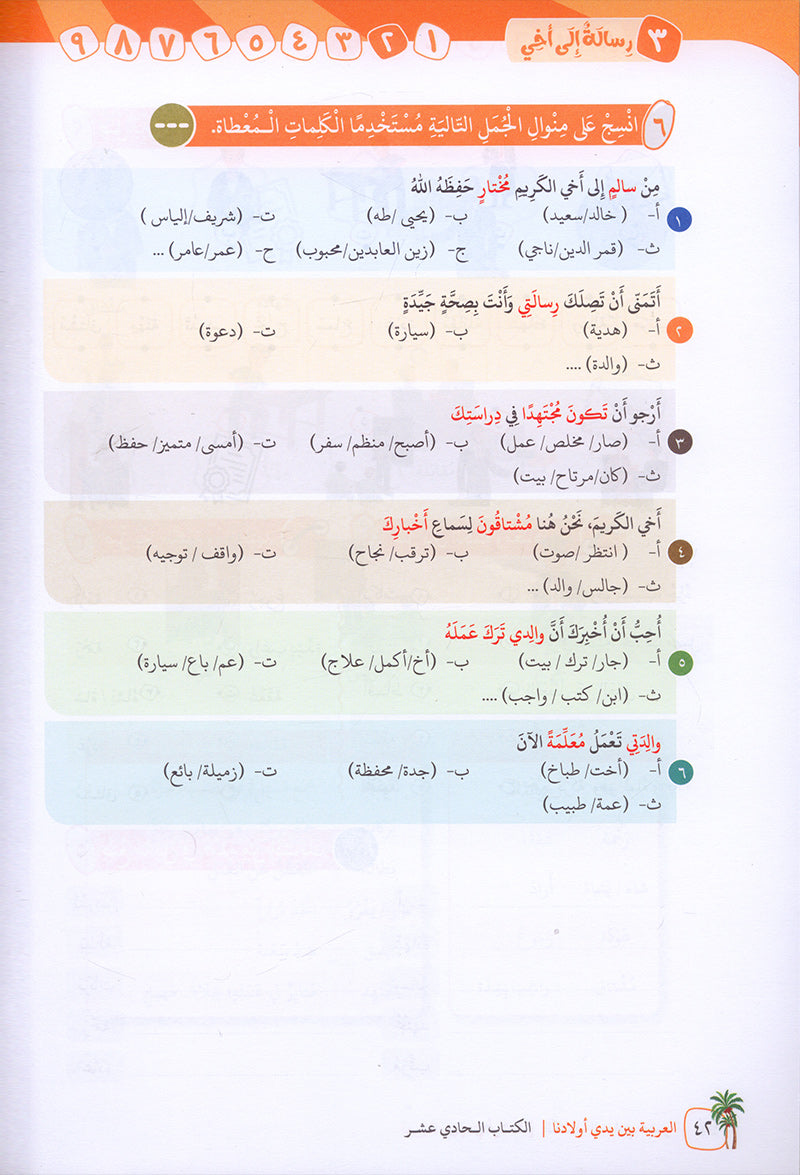 ٣ رِسالَةٌ إِلَى أَخِي ١ ٢ ٣ ٤ ٥ ٦ ٧ ٨ ٩
٦ انْسِجْ عَلى مِنْوالِ الْجُمَلِ التَّالِيَةِ مُسْتَخْدِمًا الْكَلِماتِ الْـمُعْطاة. ---
مِنْ سالمٍ إِلى أَخي الكَرِيمِ مُخْتارٍ حَفِظَهُ اللهُ
١ أ- ( خالد/سعيد) ب- (يحيى /طه) ت- (شريف/إلياس )
ث- (قمر الدين/ناجي) ج- (زين العابدين/محبوب) ح- (عمر/عامر) ...
أَتَمَنّى أَنْ تَصِلَكَ رِسالَتِي وَأَنْتَ بِصِحَّةٍ جَيِّدَةٍ
٢ أ- (هدية) ب- (سيارة) ت- (دعوة)
ث- (والدة) ....
أَرْجو أَنْ تَكونَ مُجْتَهِدًا فِي دِراسَتِكَ
٣ أ- (صار/ مخلص/ عمل) ب- (أصبح/ منظم/ سفر) ت- (أمسى/ متميز/ حفظ)
ث- (كان/مرتاح/ بيت)
أَخي الكَريمَ، نَحْنُ هُنا مُشْتاقُونَ لِسَماعِ أَخْبارِكَ
٤ أ- ( انتظر /صوت) ب- (ترقب/ نجاح) ت- (واقف / توجيه)
ث- (جالس/ والد) ...
أُحِبُّ أَنْ أُخْبِرَكَ أَنَّ والِدي تَرَكَ عَمَلَهُ
٥ أ- (جار/ ترك / بيت) ب- (أخ/أكمل/ علاج) ت- (عم/ باع/ سيارة)
ث- (ابن/ كتب / واجب) ....
والِدَتِي تَعْمَلُ مُعَلِّمَةً الآنَ
٦ أ- (أخت/ طباخ) ب- (جدة/ محفظة) ت- (زميلة/ بائع)
ث- (عمة/ طبيب)
٤٢ العربية بين يدي أولادنا | الكتـاب الـحادي عشـر